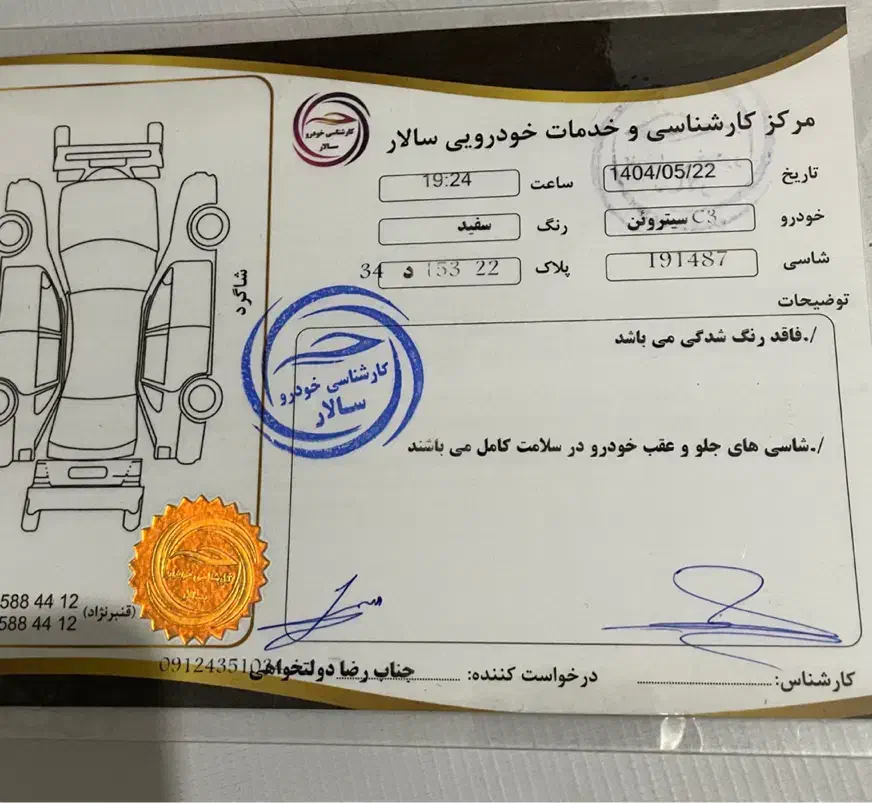 مرکز کارشناسی و خدمات خودرویی سالار
کارشناسی خودرو
سالار
تاریخ 1404/05/22 ساعت 19:24
خودرو سیتروئن C3 رنگ سفید
شاسی 191487 پلاک 22 153 د 34
توضیحات
./فاقد رنگ شدگی می باشد
./شاسی های جلو و عقب خودرو در سلامت کامل می باشند
شاگرد
کارشناسی خودرو
سالار
کارشناسی خودرو
سالار
588 44 12 (قنبرنژاد)
588 44 12
کارشناس: درخواست کننده: جناب رضا دولتخواهی